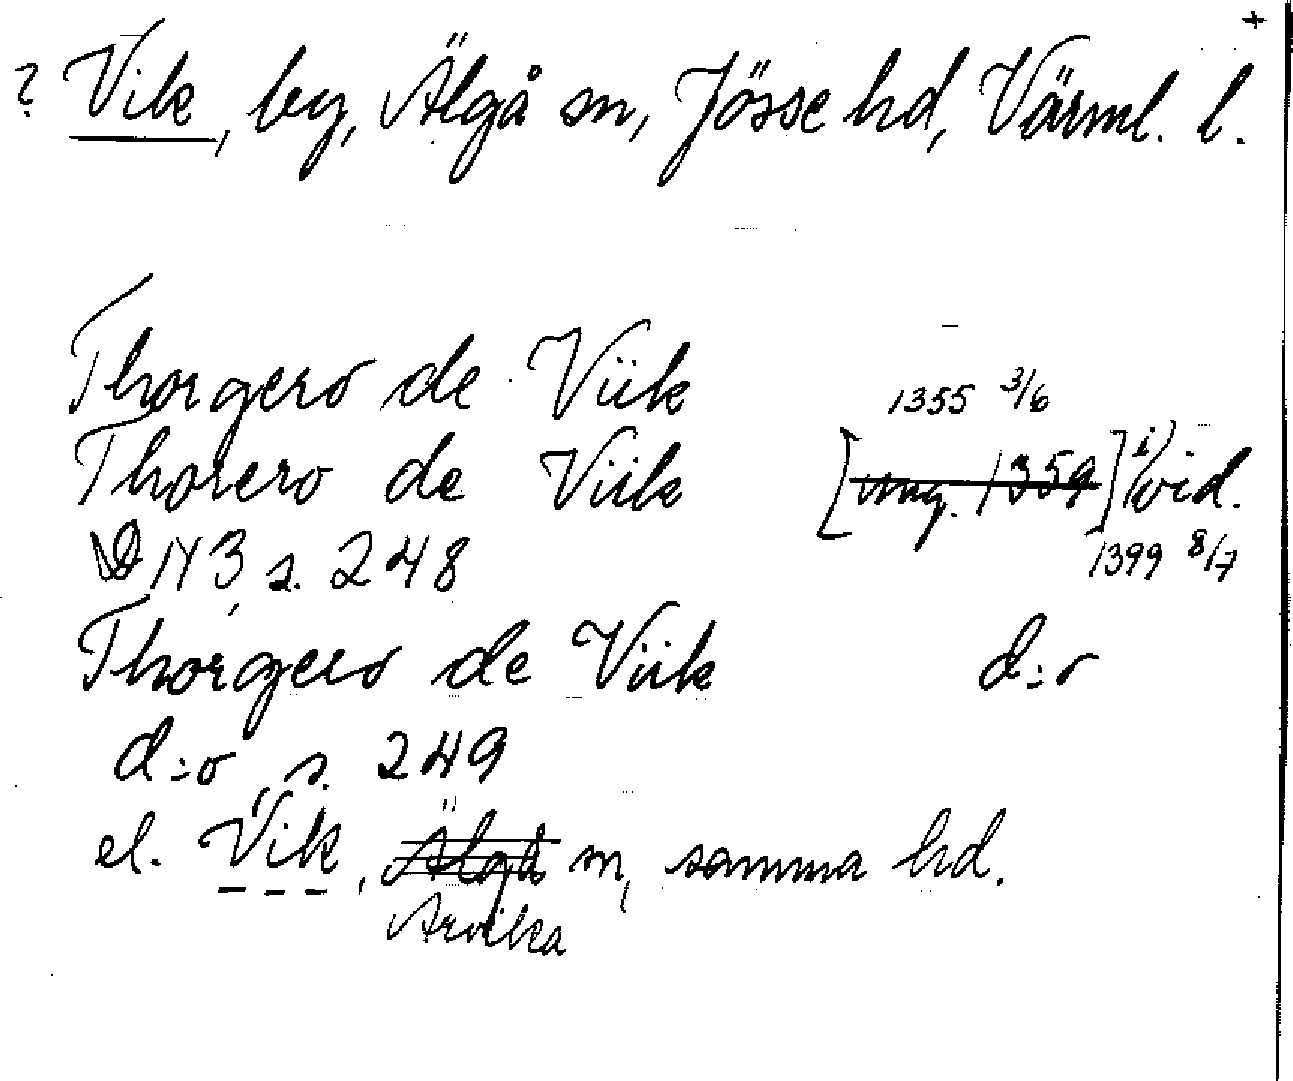 +
? Vik, by, Älgå sn, Jösse hd, Värml. l.
Thorgero de Viik 1355 3/6
Thorero de Viik [omg. 1359] i) vid.
DN 3, s. 248 1399 8/7
Thorgero de Viik d:o
d:o, s. 249
el. Vik, Älgå sn, samma hd.
Arvika